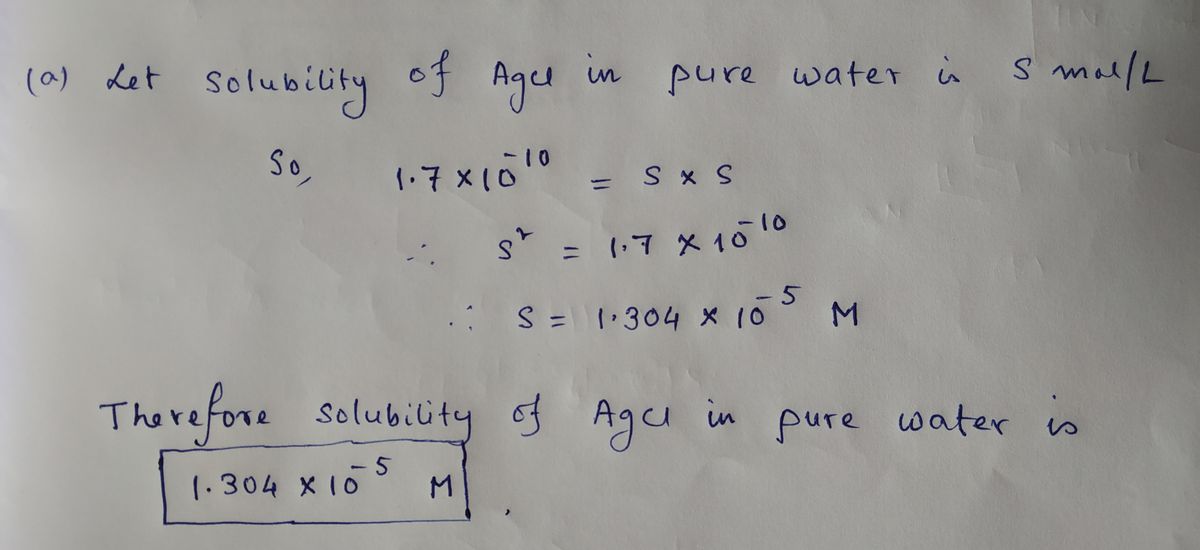 (a) Let solubility of AgCl in pure water is S mol/L
So, 1.7 × 10⁻¹⁰ = S × S
∴ S² = 1.7 × 10⁻¹⁰
∴ S = 1.304 × 10⁻⁵ M
Therefore solubility of AgCl in pure water is
1.304 × 10⁻⁵ M.